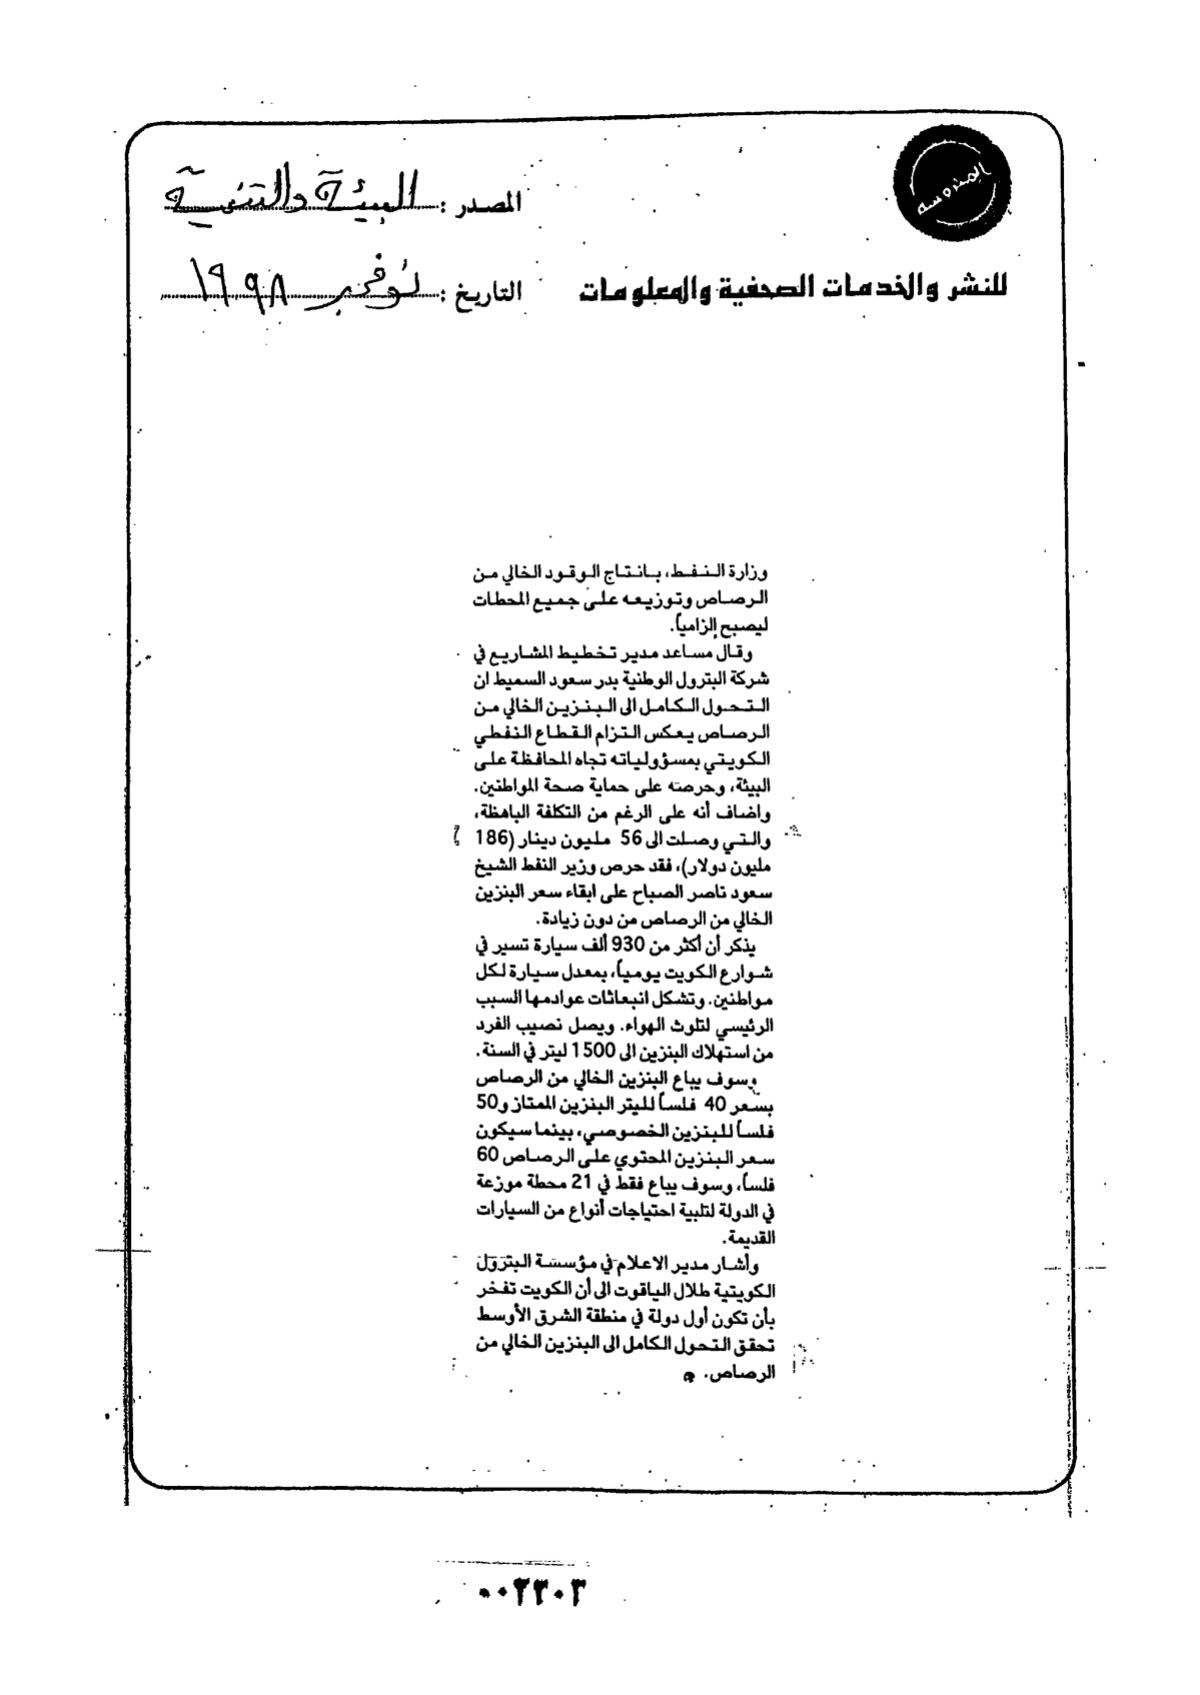 المحروسة
المصدر : البيئة والتنمية
للنشر والخدمات الصحفية والمعلومات
التاريخ : نوفمبر ١٩٩٨
وزارة النفط، بانتاج الوقود الخالي من
الرصاص وتوزيعه على جميع المحطات
ليصبح إلزامياً.
وقال مساعد مدير تخطيط المشاريع في
شركة البترول الوطنية بدر سعود السميط ان
التحول الكامل الى البنزين الخالي من
الرصاص يعكس التزام القطاع النفطي
الكويتي بمسؤولياته تجاه المحافظة على
البيئة، وحرصه على حماية صحة المواطنين.
واضاف أنه على الرغم من التكلفة الباهظة،
والتي وصلت الى 56 مليون دينار (186
مليون دولار)، فقد حرص وزير النفط الشيخ
سعود ناصر الصباح على ابقاء سعر البنزين
الخالي من الرصاص من دون زيادة.
يذكر أن أكثر من 930 ألف سيارة تسير في
شوارع الكويت يومياً، بمعدل سيارة لكل
مواطنين. وتشكل انبعاثات عوادمها السبب
الرئيسي لتلوث الهواء. ويصل نصيب الفرد
من استهلاك البنزين الى 1500 ليتر في السنة.
وسوف يباع البنزين الخالي من الرصاص
بسعر 40 فلساً لليتر البنزين الممتاز و50
فلساً للبنزين الخصوصي، بينما سيكون
سعر البنزين المحتوي على الرصاص 60
فلساً، وسوف يباع فقط في 21 محطة موزعة
في الدولة لتلبية احتياجات أنواع من السيارات
القديمة.
وأشار مدير الاعلام في مؤسسة البترول
الكويتية طلال الياقوت الى أن الكويت تفخر
بأن تكون أول دولة في منطقة الشرق الأوسط
تحقق التحول الكامل الى البنزين الخالي من
الرصاص.